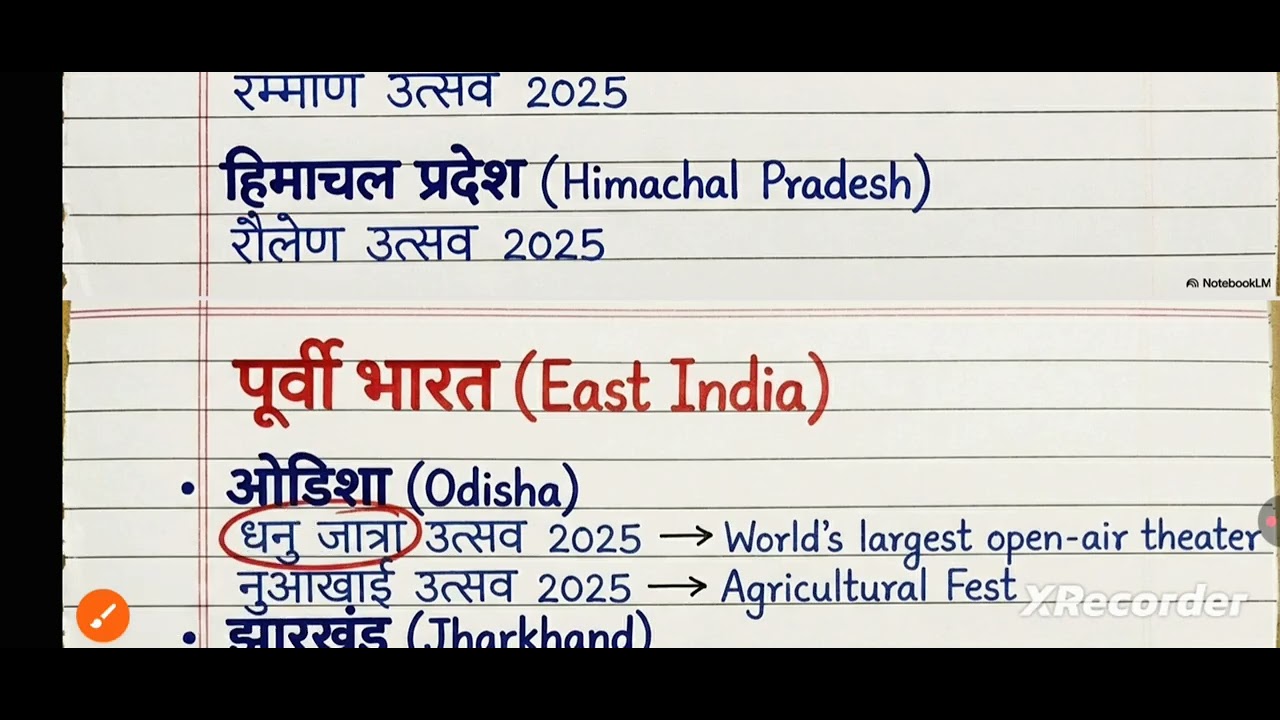 रम्माण उत्सव 2025
हिमाचल प्रदेश (Himachal Pradesh)
रौलेण उत्सव 2025
NotebookLM
पूर्वी भारत (East India)
• ओडिशा (Odisha)
धनु जात्रा उत्सव 2025 → World's largest open-air theater
नुआखाई उत्सव 2025 → Agricultural Fest
XRecorder
• झारखंड (Jharkhand)